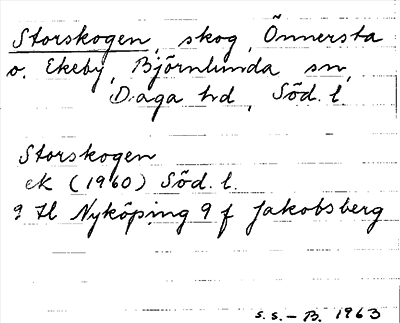 Storskogen, skog, Önnersta
o. Ekeby, Björnlunda sn,
Daga hd, Söd. l
Storskogen
ek (1960) Söd. l.
9 H Nyköping 9 f Jakobsberg
s.s. - B. 1963